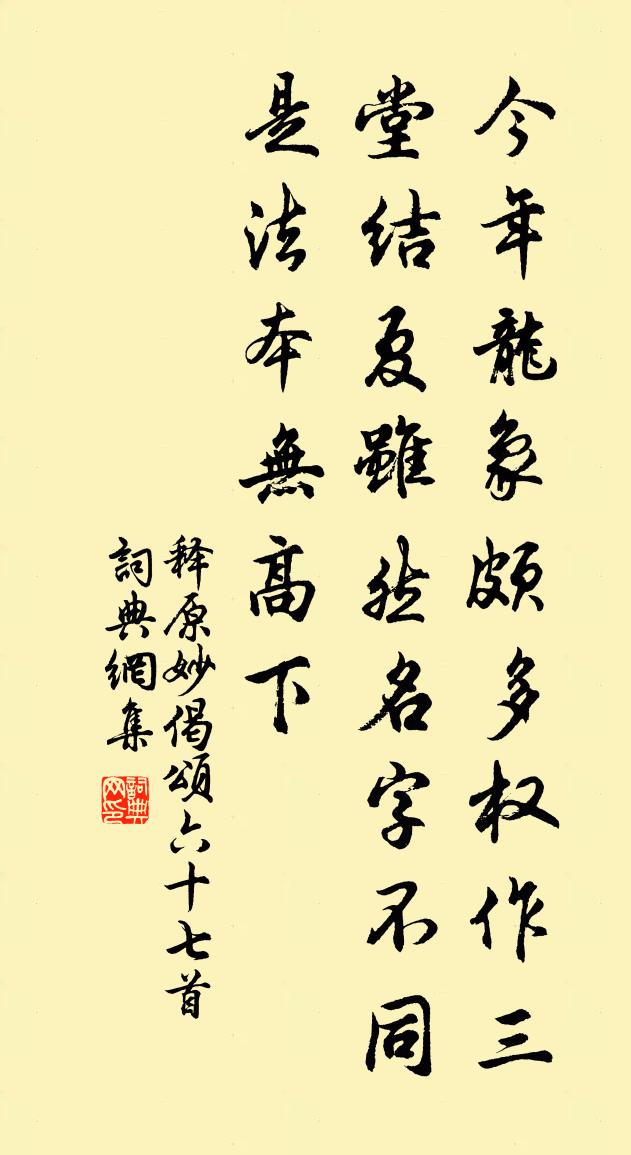 今年龍象頗多权作三
堂結夏雖然名字不同
是法本無高下
释原妙偈頌六十七首
詞典網集
詞典网印